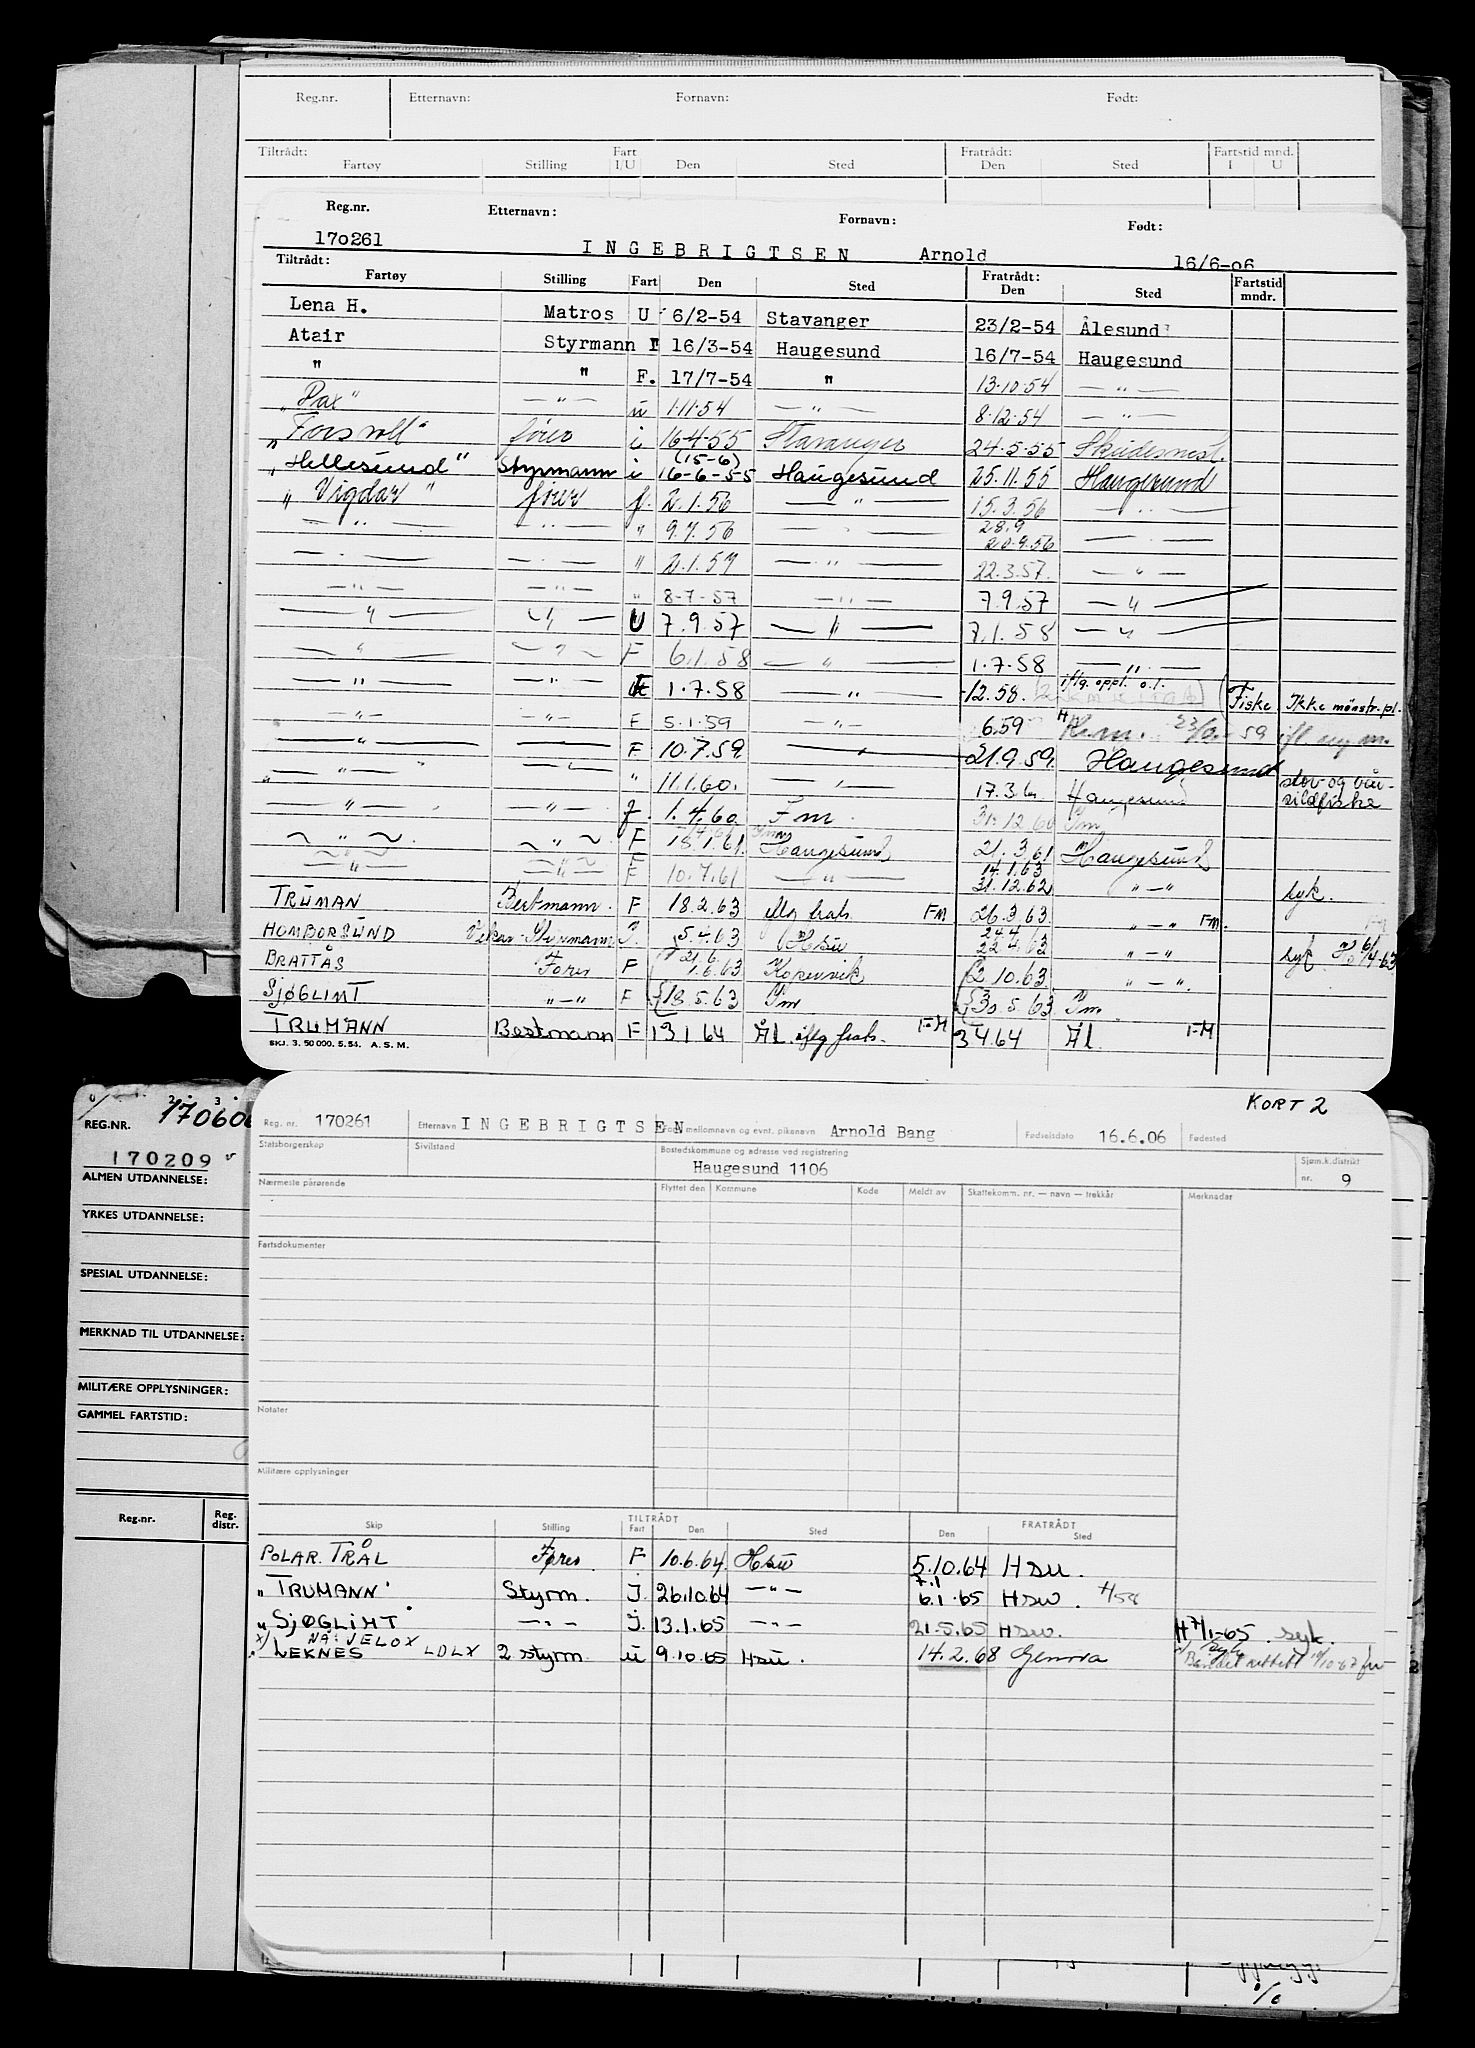 Reg.nr. Etternavn: Fornavn: Født:
Tiltrådt: Fratrådt: Fartstid mnd.
Fartøy Stilling Fart I/U Den Sted Den Sted I U
Reg.nr. Etternavn: Fornavn: Født:
170261 INGEBRIGTSEN Arnold 16/6-06
Tiltrådt: Fratrådt:
Fartøy Stilling Fart Den Sted Den Sted Fartstid mndr.
Lena H. Matros U 6/2-54 Stavanger 23/2-54 Ålesund
Atair Styrmann 16/3-54 Haugesund 16/7-54 Haugesund
" " F. 17/7-54 " 13.10.54 — " —
"Pax" — " — u 1.11.54 — " — 8.12.54 — " —
fører i 16.4.55 Stavanger 24.5.55
(15-6)
"Hellesund" Styrmann i 16-6-55 Haugesund 25.11.55 Haugesund
"Vigdar" fører f. 2.1.56 — " — 15.3.56 — " —
28.9
— " — — " — " 9.7.56 — " — 20.9.56 — " —
— " — — " — " 2.1.57 — " — 22.3.57. — " —
— " — — " — " 8-7-57 — " — 7.9.57 — " —
— " — — " — U 7.9.57 — " — 7.1.58 — " —
— " — — " — F 6.1.58 — " — 1.7.58 — " —
— " — — " — F 1.7.58 — " — -12.58. iflg. oppl. o.l. (Fiske Ikke mønstr.pl.
— " — — " — F 5.1.59 — " — 6.59 59
— " — — " — F 10.7.59. — " — 21.9.59. Haugesund
— " — — " — " 11.1.60. — " — 17.3.6 Haugesund stor og vår-
sildfiske
— " — — " — f. 1.4.60. Fm. 31.12.60
— " — — " — F 18.1.61. Haugesund 21.3.61 Haugesund
14.1.63
— " — — " — F 10.7.61 — " — 31.12.62 " — " syk.
TRUMAN Bestmann. F 18.2.63 iflg hats. FM 26.3.63. " — " FM.
24.4
HOMBORSUND Vikar-Styrmann 5.4.63 Hsu 22.4.63 " — " syk.
21.6.
BRATTÅS Fører F 1.6.63 Kopervik 2.10.63 " — "
SJØGLIMT " — " F 18.5.63 Pm 30.5.63 Pm
TRUMANN Bestmann F 13.1.64 Ål. iflg hats. FM 3.4.64 Ål FM
SKJ. 3. 50 000. 5. 54. A.S.M.
KORT 2
REG.NR.
170209
ALMEN UTDANNELSE:
YRKES UTDANNELSE:
SPESIAL UTDANNELSE:
MERKNAD TIL UTDANNELSE:
MILITÆRE OPPLYSNINGER:
GAMMEL FARTSTID:
Reg.nr. Reg. distr.
Reg. nr. 170261 Etternavn INGEBRIGTSEN For-, mellomnavn og evnt. pikenavn Arnold Bang Fødselsdato 16.6.06 Fødested
Statsborgerskap Sivilstand Bostedskommune og adresse ved registrering Sjøm.k.distrikt
Haugesund 1106 nr. 9
Nærmeste pårørende Flyttet den Kommune Kode Meldt av Skattekomm. nr. — navn — trekkår Merknader
Fartsdokumenter
Notater
Militære opplysninger
TILTRÅDT FRATRÅDT
Skip Stilling Fart Den Sted Den Sted
POLAR. TRÅL Fører. F 10.6.64 Hsu 5.10.64 HSU.
7.1
" TRUMANN" Styrm. I. 26.10.64 — " — 6.1.65 HSU.
" SJØGLIMT — " — I. 13.1.65 — " — 21.5.65 HSU. H 7/1-65. syk.
x) NÅ: JELOX
LEKNES LDLX 2 styrm. u 9.10.65 HSU. 14.2.68 Genova